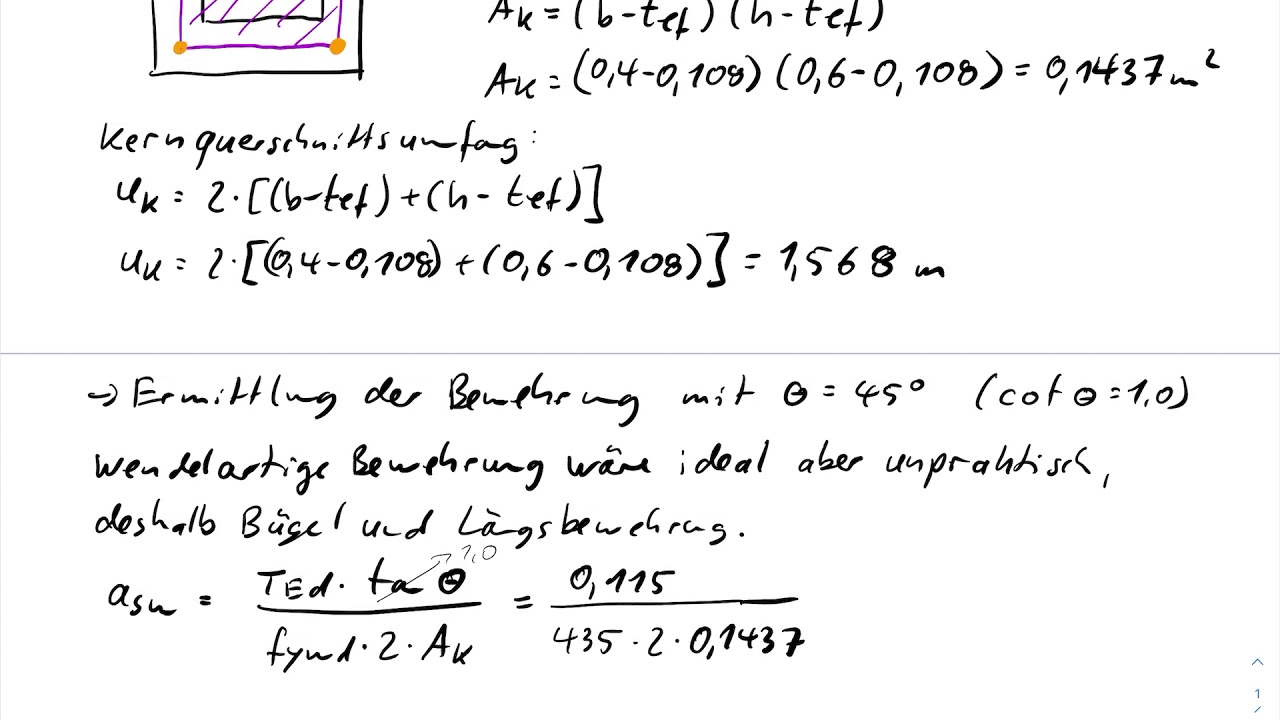 Ak = (b-tef) (h-tef)
Ak = (0,4-0,108) (0,6-0,108) = 0,1437 m²
Kernquerschnittsumfag:
uk = 2·[(b-tef)+(h-tef)]
uk = 2·[(0,4-0,108)+(0,6-0,108)] = 1,568 m
→ Ermittlung der Bewehrung mit θ = 45° (cot θ = 1,0)
Wendelartige Bewehrung wäre ideal aber unpraktisch,
deshalb Bügel und Längsbewehrung.
1,0
asw = TEd · tan θ / fywd · 2 · Ak = 0,115 / 435 · 2 · 0,1437
1